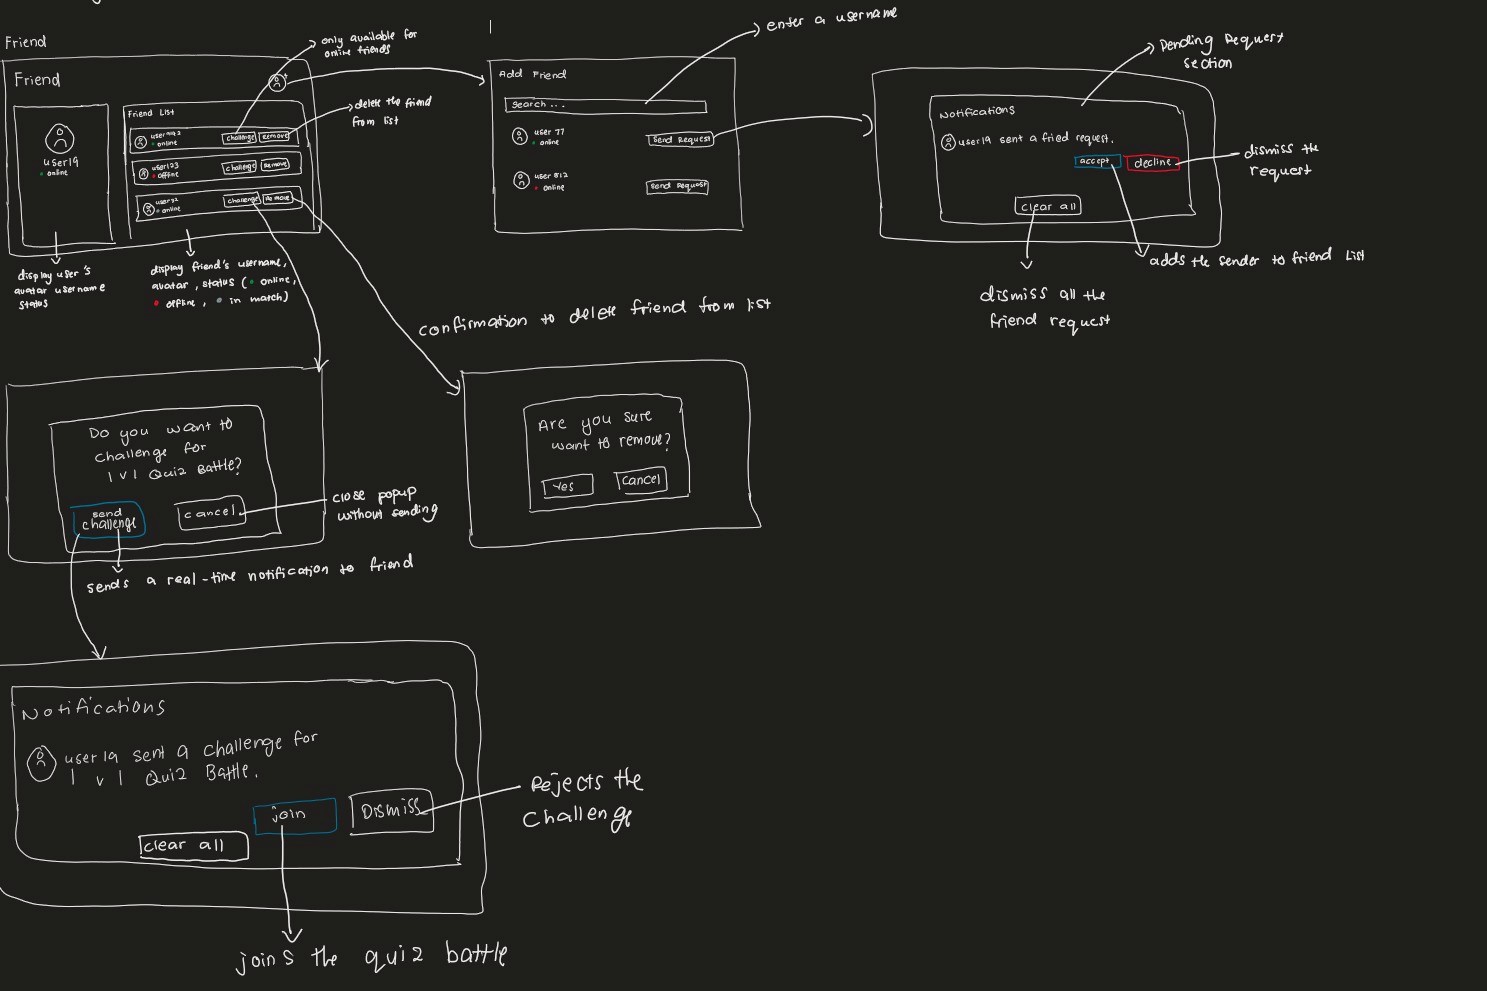 Friend
Friend
user19
online
Friend List
online
challenge
Remove
user123
offline
challenge
Remove
user32
online
challenge
Remove
only available for
online friends
delete the friend
from list
display user's
avatar username
status
display friend's username,
avatar, status ( • online,
• offline, • in match)
Add Friend
Search ...
user 77
online
Send Request
user 812
online
Send Request
enter a username
Pending Request
section
Notifications
user19 sent a fried request.
accept
decline
clear all
dismiss the
request
adds the sender to friend List
dismiss all the
friend request
confirmation to delete friend from list
Do you want to
challenge for
1 v 1 Quiz Battle?
send
challenge
cancel
close popup
without sending
sends a real-time notification to friend
Are you sure
want to remove?
Yes
Cancel
Notifications
user19 sent a challenge for
1 v 1 Quiz Battle.
join
Dismiss
clear all
Rejects the
challenge
joins the quiz battle